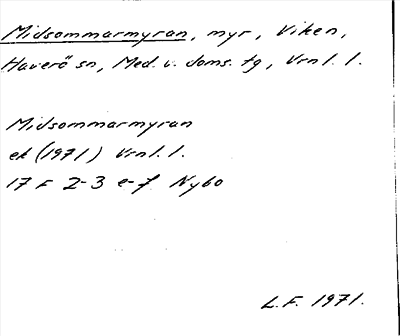 Midsommarmyran, myr, Viken,
Haverö sn, Med. v. doms. tg, Vrnl. l.
Midsommarmyran
ek (1971) Vrnl. l.
17 F 2-3 e-f Nybo
L.F. 1971.